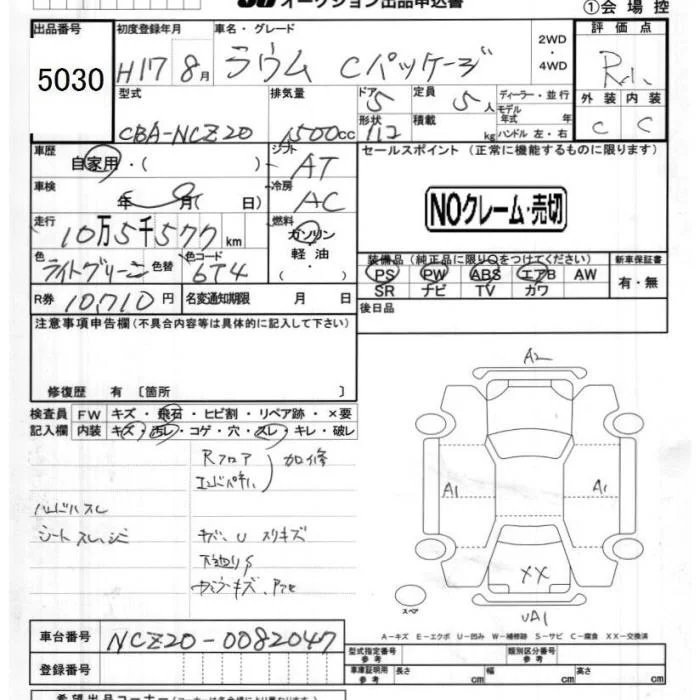 オークション出品申込書
①会場控
出品番号
5030
初度登録年月
H17 8月
車名・グレード
ラウム Cパッケージ
2WD
・
4WD
評価点
R
外装 内装
C C
型式
CBA-NCZ20
排気量
1500cc
ドア
5
定員
5人
ディーラー・並行
モデル
年式 年
形状
112
積載
kg
ハンドル 左・右
車歴
自家用・( )
シフト
AT
セールスポイント (正常に機能するものに限ります)
車検
年 月( 日)
冷房
AC
NOクレーム・売切
走行
10万5千577km
燃料
ガソリン
・
軽油
・
( )
色
ライトグリーン
色替
色コード
6T4
装備品(純正品に限り○をつけてください)
PS PW ABS エアB AW
SR ナビ TV カワ
新車保証書
有・無
R券 10,710円
名変通知期限 月 日
後日品
注意事項申告欄(不具合内容等は具体的に記入して下さい)
修復歴 有〔箇所 〕
検査員 FW キズ・飛石・ヒビ割・リペア跡・×要
記入欄 内装 キズ・汚レ・コゲ・穴・スレ・キレ・破レ
Rフロア
加修
ハンドルスレ
シート スレ
キズ、U スリキズ
A2
A1
A1
XX
UA1
スペア
A-キズ E-エクボ U-凹み W-補修跡 S-サビ C-腐食 XX-交換済
車台番号 NCZ20-0082047
登録番号
型式指定番号
参考
類別区分番号
参考
車庫証明用
参考
長さ cm 幅 cm 高さ cm
希望出品コーナー